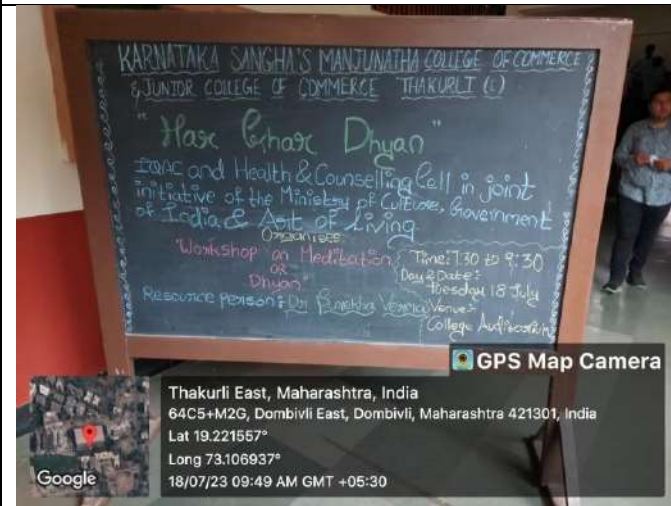 KARNATAKA SANGHA'S MANJUNATHA COLLEGE OF COMMERCE
& JUNIOR COLLEGE OF COMMERCE THAKURLI (E)
"Har Ghar Dhyan"
IQAC and Health & Counselling Cell in joint
initiative of the Ministry of Culture, Government
of India & Art of Living
Organises
"Workshop on Meditation
OR
Dhyan"
Time: 7.30 to 9:30
Day & Date:
Tuesday 18 July
Resource person: Dr Verma
Venue:
College Auditorium
GPS Map Camera
Google
Thakurli East, Maharashtra, India
64C5+M2G, Dombivli East, Dombivli, Maharashtra 421301, India
Lat 19.221557°
Long 73.106937°
18/07/23 09:49 AM GMT +05:30